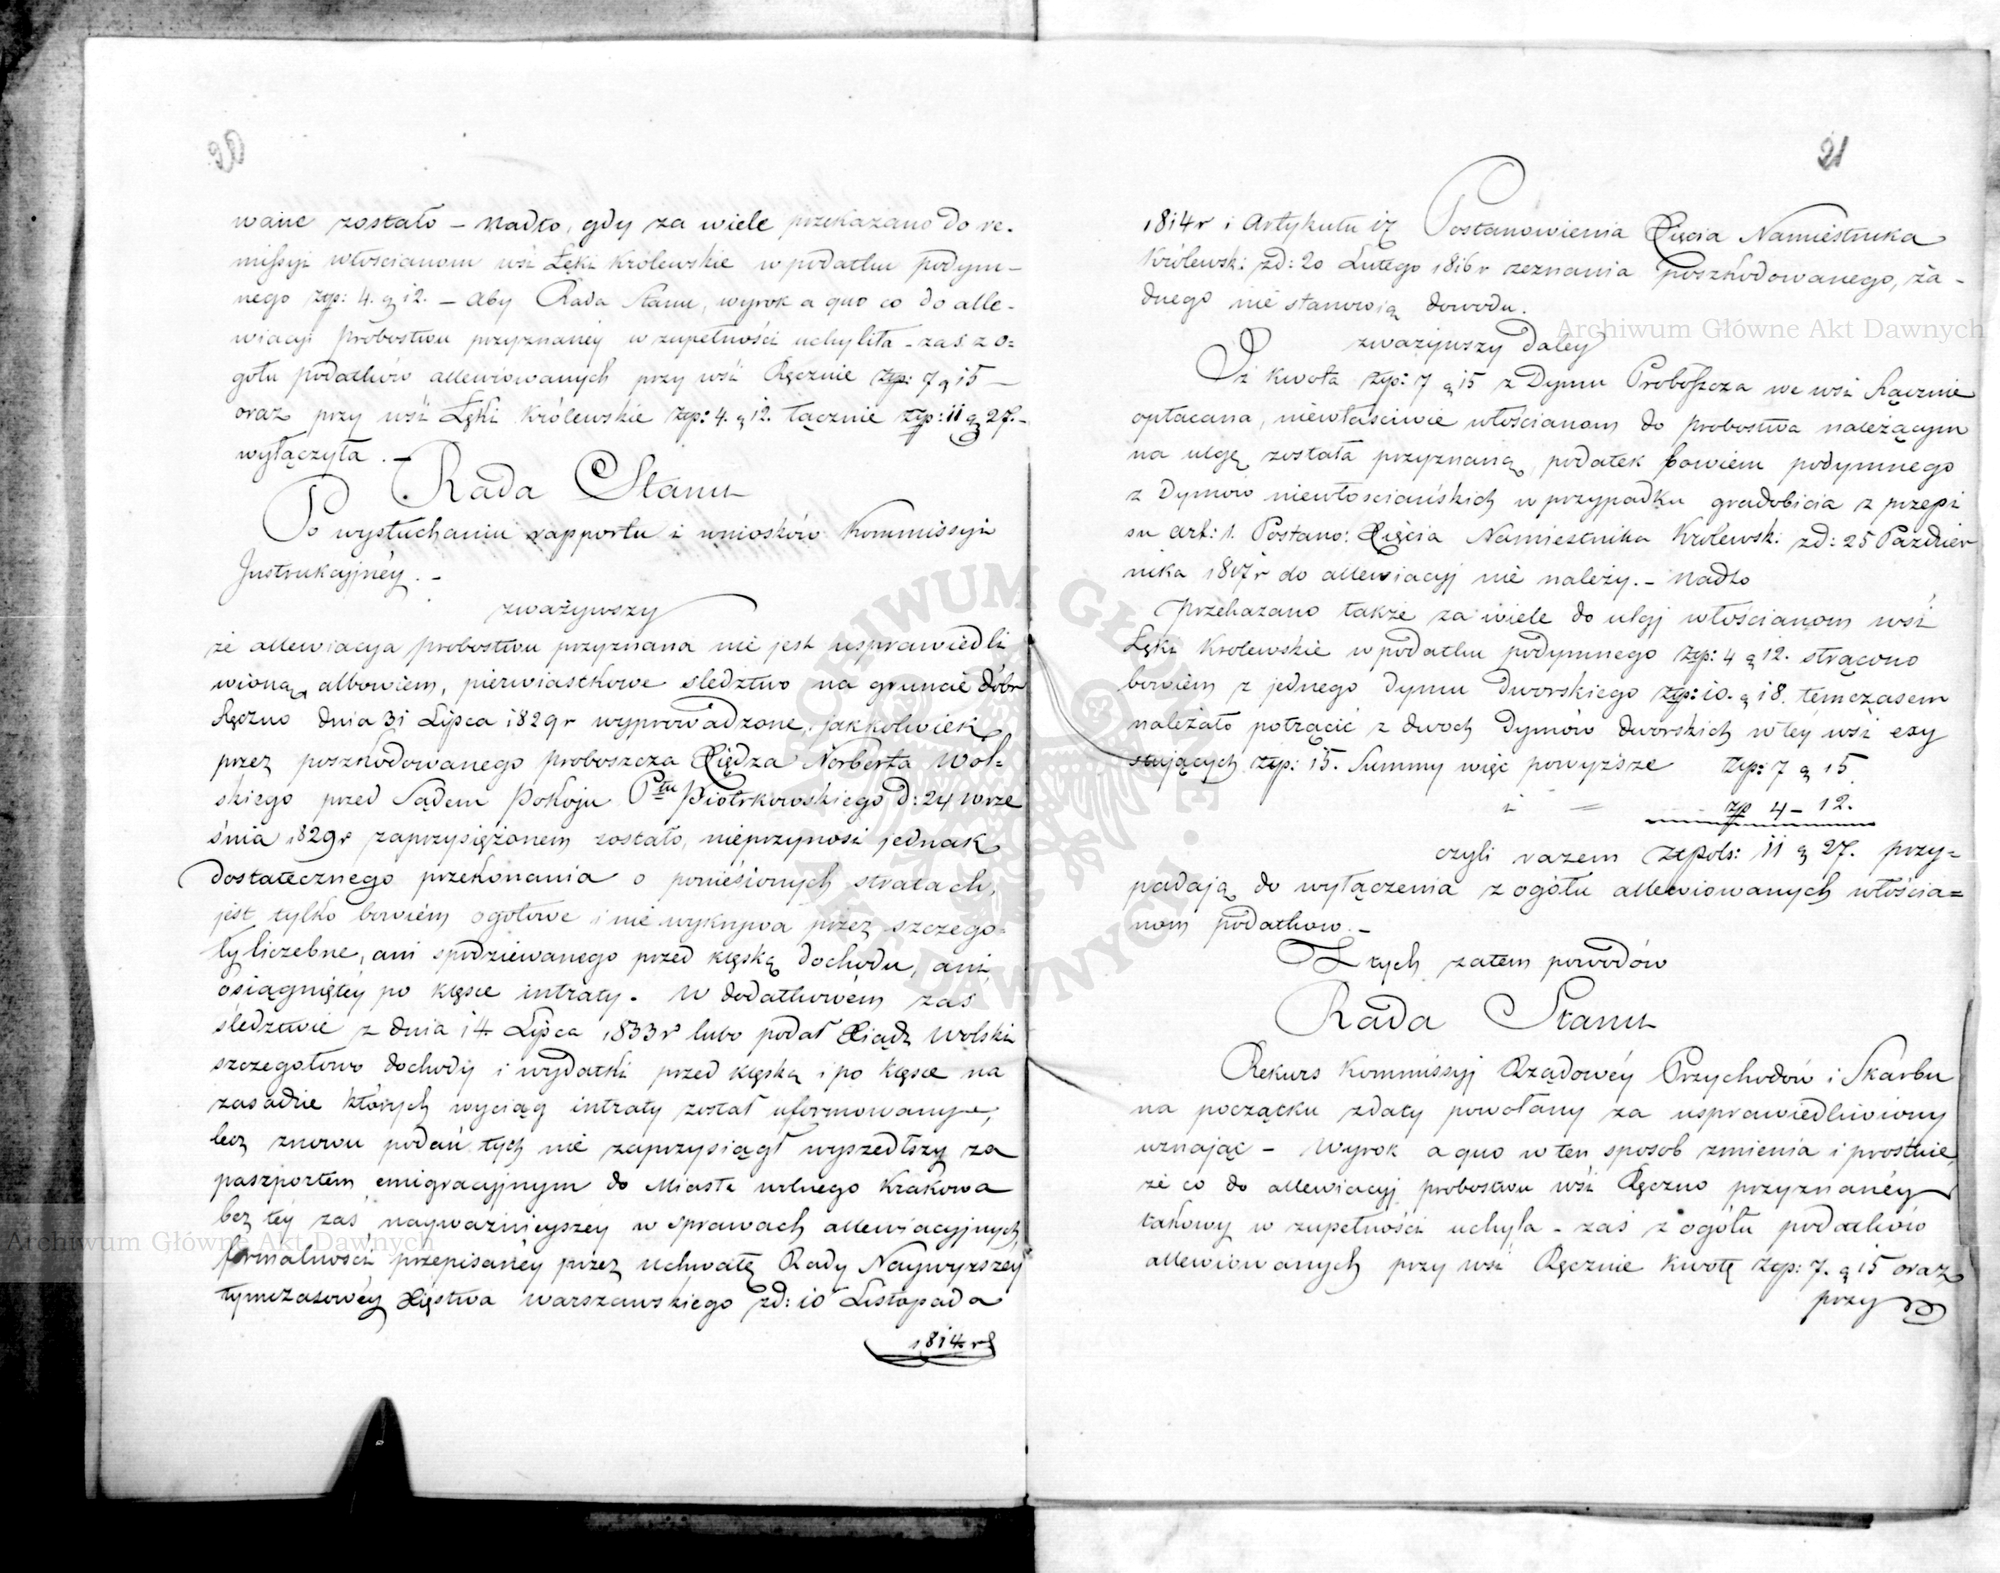 wane zostało – Nadto, gdy za wiele przekazano do re-
missyi włościanom wsi Łęki Królewskie w podatku podym-
nego zp: 4. g 12. – Aby Rada Stanu, wyrok a quo co do alle-
wiacyi Probostwu przyznaney w zupełności uchyliła – zaś z o=
gołu podatków allewiowanych przy wsi Ręcznie Zzp: 7 g 15 –
oraz przy wsi Łęki Królewskie zzp: 4. g 12. łącznie zzp: 11 g 27. –
wyłączyła. –
Rada Stanu
Po wysłuchaniu rapportu i wniosków Kommissyi
Instrukcyjnéy. –
zważywszy
że allewiacya probostwu przyznana nie jest usprawiedli
wioną, albowiem, pierwiastkowe śledztwo na gruncie dóbr
Ręczno dnia 31 Lipca 1829 r wyprowadzone, jakkolwiek
przez poszkodowanego proboszcza Xiędza Norberta Wol=
skiego przed Sądem Pokoju Ptu Piotrkowskiego d: 24 Wrze
śnia 1829 r zaprzysiężonem zostało, nieprzynosi jednak
dostatecznego przekonania o poniesionych stratach,
jest tylko bowiem ogółowe i nie wykrywa przez szczego=
ły liczebne, ani spodziewanego przed klęską dochodu, ani
osiągniętéy po klęsce intraty. W dodatkowém zaś
śledztwie z dnia 14 Lipca 1833 r lubo podał Xiądz Wolski
szczegółowo dochody i wydatki przed klęską i po klęsce na
zasadzie których wyciąg intraty został uformowany,
lecz znowu podań tych nie zaprzysiągł wyszedłszy za
paszportem emigracyjnym do Miasta wolnego Krakowa
bez tey zaś naywaznieyszéy w sprawach allewiacyjnych
formalności przepisanéy przez uchwałę Rady Naywyższey
tymczasowéy Xięstwa Warszawskiego zd: 10 Listopada
1814 r
21
1814 r i Artykułu Postanowienia Xięcia Namiestnika
Królewsk: zd: 20 Lutego 1816 r zeznania poszkodowanego, ża-
dnego nie stanowią dowodu.
zważywszy daley
Iż kwota zzp: 7 g 15 z Dymu Proboszcza we wsi Ręcznie
opłacana, niewłaściwie włościanom do probostwa należącym
na ulgę została przyznaną, podatek bowiem podymnego
z Dymów niewłościańskich w przypadku gradobicia z przepi
su art: 1. Postano: Xięcia Namiestnika Królewsk: zd: 25 Paździer
nika 1817 r do allewiacyj nie należy. – Nadto
przekazano także za wiele do ulgi włościanom wsi
Łęki Królewskie w podatku podymnego zzp: 4 g 12. strącono
bowiem z jednego Dymu Dworskiego zzp: 10. g 18. temczasem
należało potrącić z dwóch Dymów dworskich w téy wsi exy
stujących zzp: 15. Summy więc powyższe Zzp: 7 g 15
i = zp 4 – 12.
czyli razem Złpols: 11 g 27. przy=
padają do wyłączenia z ogółu allewiowanych włościa=
nom podatkow. –
Z tych zatem powodów
Rada Stanu
Rekurs Kommissyj Rządowéy Przychodów i Skarbu
na początku zdaty powołany za usprawiedliwiony
uznając – Wyrok a quo w ten sposób zmienia i prostuie,
że co do allewiacyj probostwu wsi Ręczno przyznanéy
takowy w zupełności uchyla – zaś z ogółu podatków
allewiowanych przy wsi Ręcznie kwotę Zzp: 7. g 15 oraz
przy
Archiwum Główne Akt Dawnych
Archiwum Główne Akt Dawnych
ARCHIWUM GŁÓWNE AKT DAWNYCH